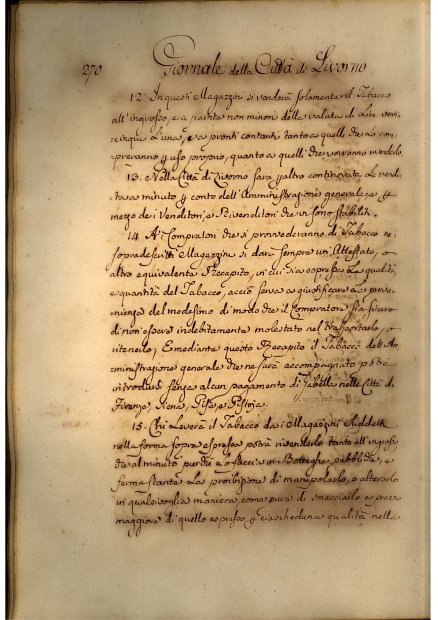 270 Giornale della Città di Livorno
12. In questi Magazzini si venderà solamente il Tabacco
all'ingrosso, e a partita non minor della valuta di Lire vent-
icinque l'una, e a pronti contanti tanto a quelli che lo com-
preranno p uso proprio, quanto a quelli che vorranno rivenderlo
13. Nella Città di Livorno sarà p altro continovata la vend-
ita a minuto p conto dell'Amministrazione generale, e p
mezzo de i Venditori, e Rivenditori che vi sono stabiliti.
14. A i Compratori che si provvederanno di Tabacco ne i
sopradescritti Magazzini si darà sempre un Attestato, o
altro equivalente Recapito, in cui sia espressa la qualità,
e quantità del Tabacco, acciò serva a giustificare la prove-
nienza del medesimo di modo che il Compratore sia sicuro
di non essere indebitamente molestato nel trasportarlo, o
ritenerlo; E mediante questo Recapito il Tabacco dell'Am-
ministrazione generale che ne sarà accompagnato potrà
introdursi senza alcun pagamento di Gabella nelle Città di
Firenze, Siena, Pisa, e Pistoja.
15. Chi leverà il Tabacco da i Magazzini suddetti
nella forma sopra espressa potrà rivenderlo tanto all'ingrosso,
che al minuto purchè lo faccia in Botteghe pubbliche, e
ferma stante la proibizione di manipolarlo, o alterarlo
in qualsivoglia maniera, come pure di smerciarlo a prezzo
maggiore di quello espresso p ciascheduna qualità nella